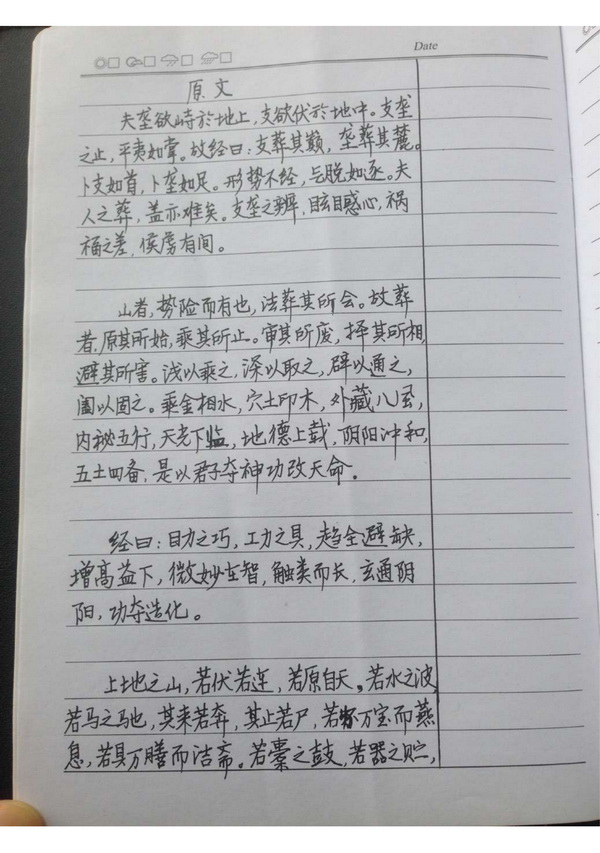 Date
原文
夫垄欲峙於地上，支欲伏於地中。支垄
之止，平夷如掌。故经曰：支葬其巅，垄葬其麓。
卜支如首，卜垄如足。形势不经，气脱如逐。夫
人之葬，盖亦难矣。支垄之辨，眩目惑心，祸
福之差，侯虏有间。
山者，势险而有也，法葬其所会。故葬
者，原其所始，乘其所止。审其所废，择其所相，
避其所害。浅以乘之，深以取之，辟以通之，
阖以固之。乘金相水，穴土印木，外藏八风，
内秘五行，天光下临，地德上载，阴阳冲和，
五土四备，是以君子夺神功改天命。
经曰：目力之巧，工力之具，趋全避缺，
增高益下，微妙在智，触类而长，玄通阴
阳，功夺造化。
上地之山，若伏若连，若原自天。若水之波，
若马之驰，其来若奔，其止若尸，若怀万宝而燕
息，若具万膳而洁斋。若橐之鼓，若器之贮，